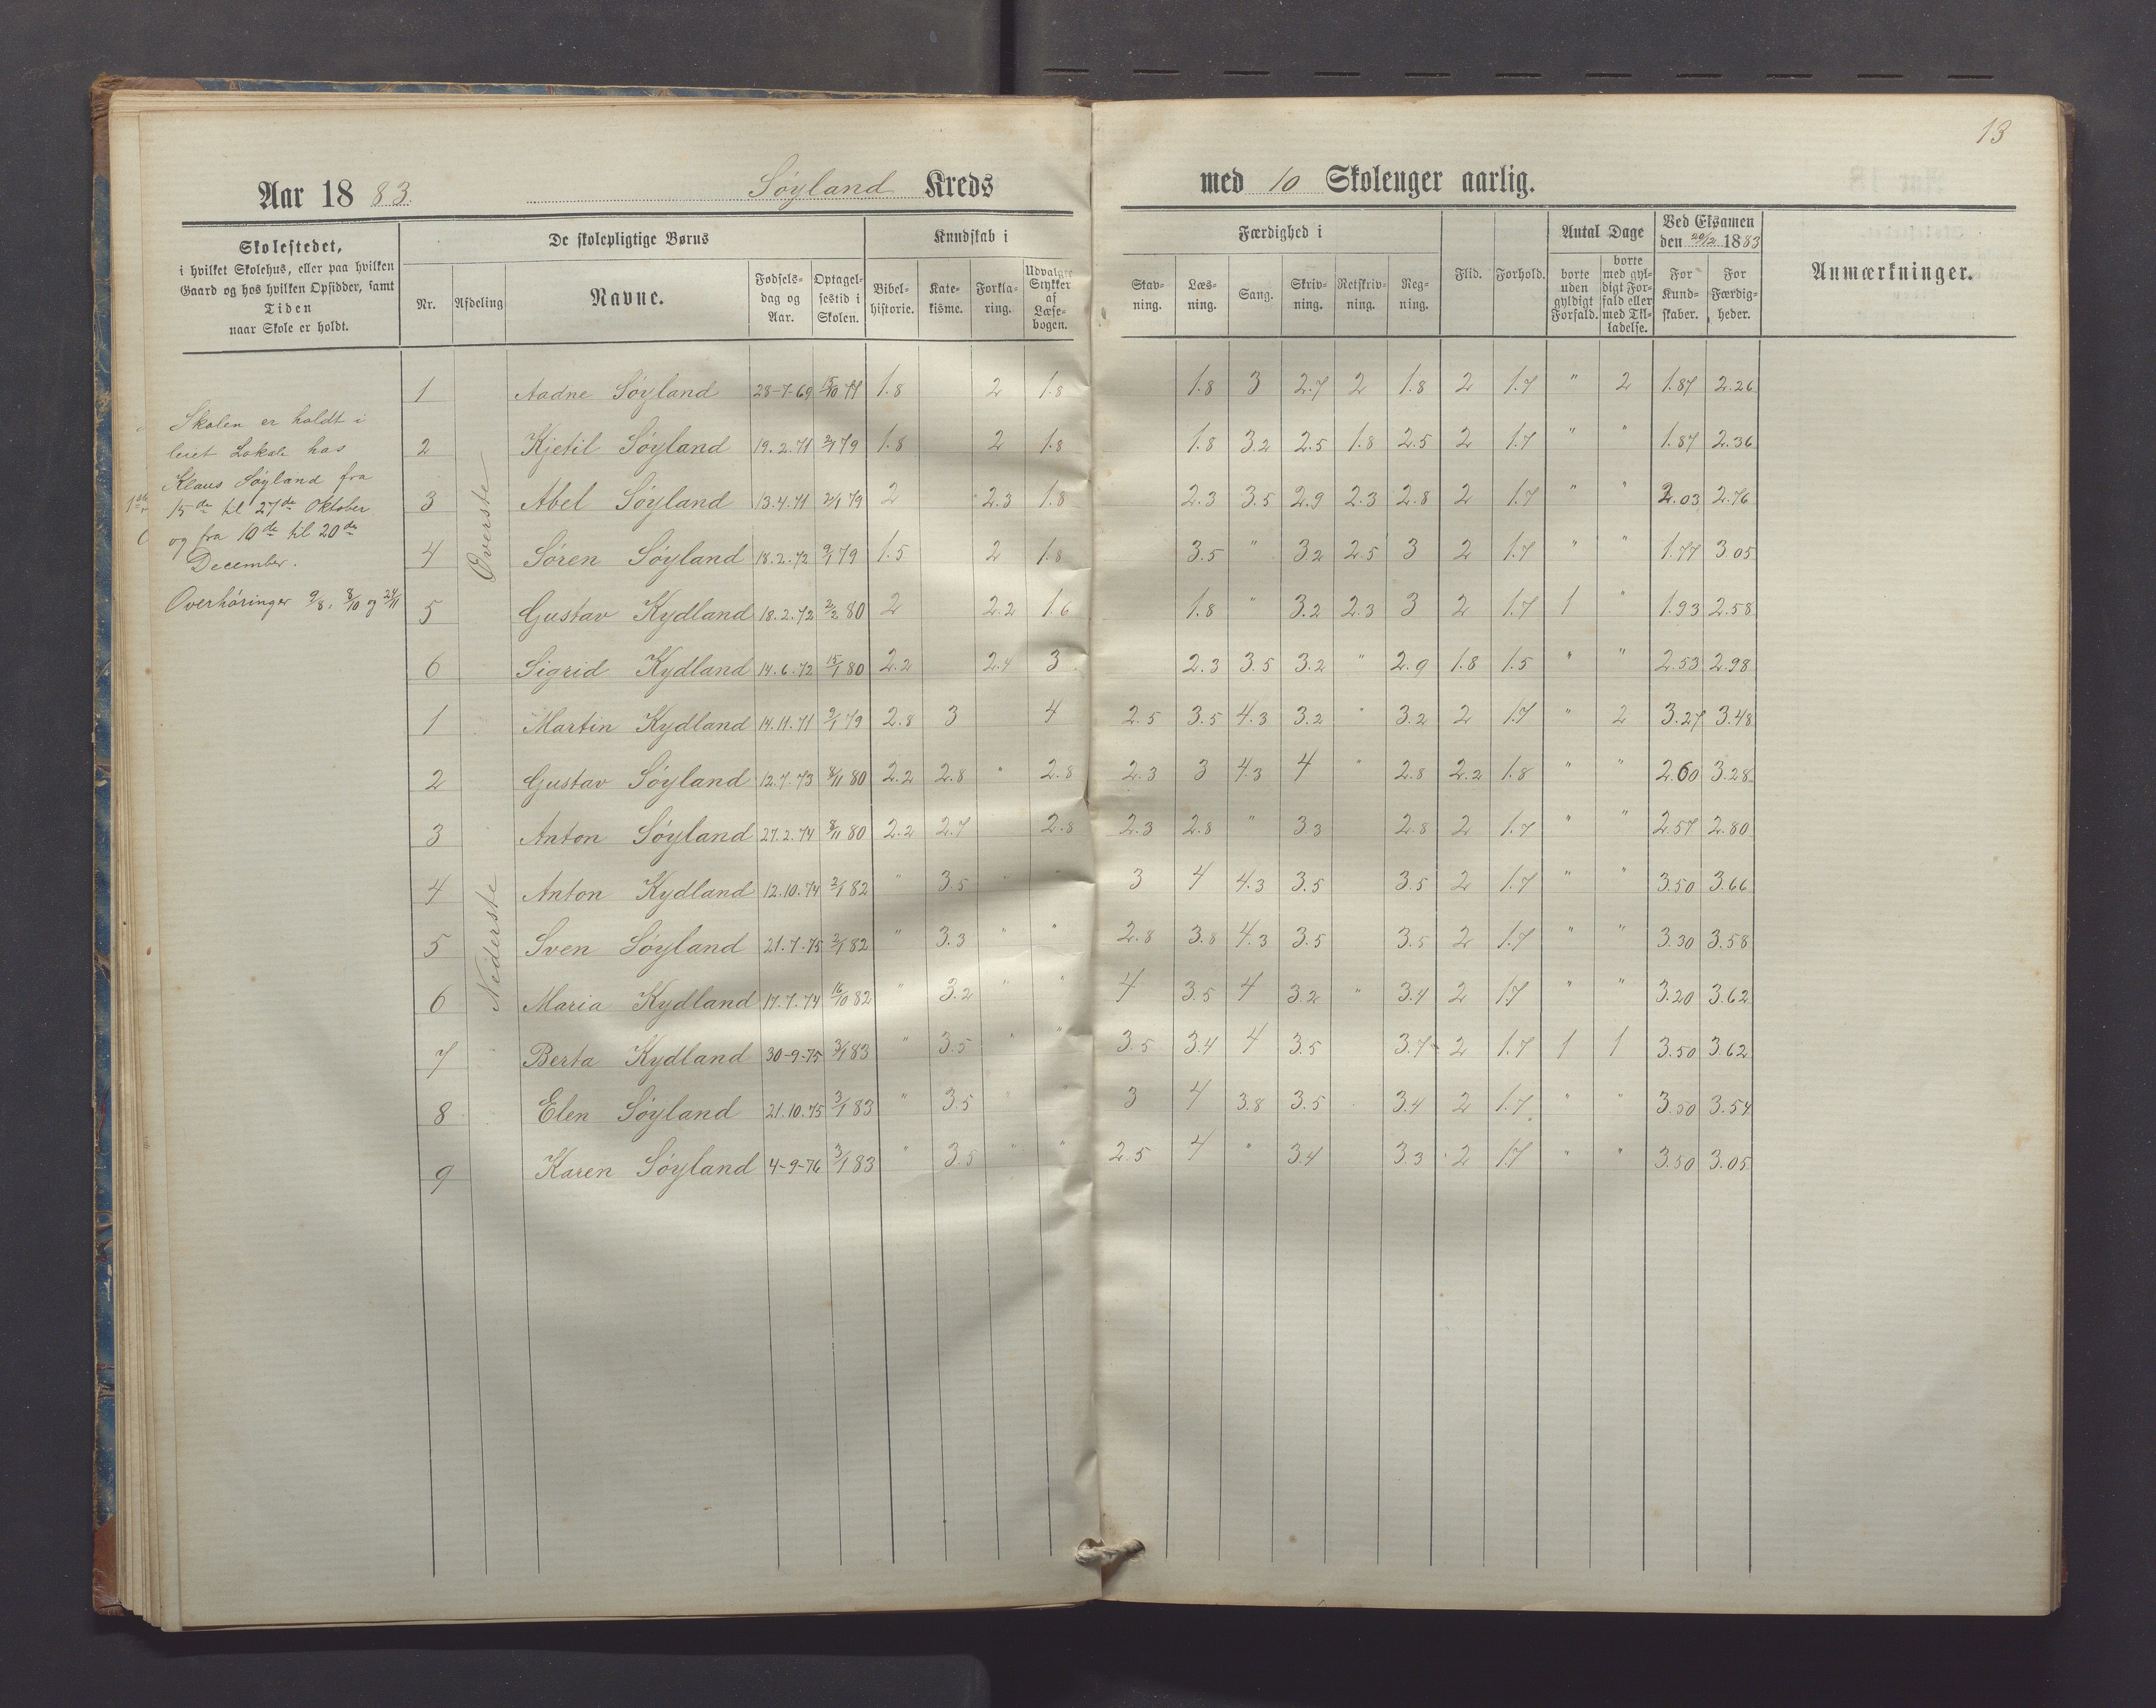 13
Aar 1883. Søyland Kreds med 10 Skoleuger aarlig.
Skolestedet,
i hvilket Skolehus, eller paa hvilken
Gaard og hos hvilken Opsidder, samt
Tiden
naar Skole er holdt.
De skolepligtige Børns
Nr. Afdeling Navne. Fødselsdag og Aar. Optagelsestid i Skolen.
Kundskab i
Bibelhistorie. Katekisme. Forklaring. Udvalgte Stykker af Læsebogen.
Færdighed i
Stavning. Læsning. Sang. Skrivning. Retskrivning. Regning.
Flid. Forhold.
Antal Dage
borte uden gyldigt Forfald. borte med gyldigt Forfald eller med Tilladelse.
Ved Eksamen den 20/12 1883
For Kundskaber. For Færdigheder.
Anmærkninger.
Skolen er holdt i
leiet Lokale hos
Klaus Søyland fra
15de til 27de Oktober
og fra 10de til 20de
December.
Overhøringer 9/8, 8/10 og 24/11
Øverste
1 Aadne Søyland 28-7-69 15/10 77 1.8 2 1.8 1.8 3 2.7 2 1.8 2 1.7 " 2 1.87 2.26
2 Kjetil Søyland 19.2.71 2/1 79 1.8 2 1.8 1.8 3.2 2.5 1.8 2.5 2 1.7 " " 1.87 2.36
3 Abel Søyland 13.4.71 2/1 79 2 2.3 1.8 2.3 3.5 2.9 2.3 2.8 2 1.7 " " 2.03 2.76
4 Søren Søyland 18.2.72 9/1 79 1.5 2 1.8 3.5 " 3.2 2.5 3 2 1.7 " " 1.77 3.05
5 Gustav Kydland 18.2.72 2/2 80 2 2.2 1.6 1.8 " 3.2 2.3 3 2 1.7 1 " 1.93 2.58
6 Sigrid Kydland 14.6.72 15/1 80 2.2 2.4 3 2.3 3.5 3.2 " 2.9 1.8 1.5 " " 2.53 2.98
Nederste
1 Martin Kydland 14.11.71 9/1 79 2.8 3 4 2.5 3.5 4.3 3.2 " 3.2 2 1.7 " 2 3.27 3.48
2 Gustav Søyland 12.7.73 8/11 80 2.2 2.8 " 2.8 2.3 3 4.3 4 " 2.8 2.2 1.8 " " 2.60 3.28
3 Anton Søyland 27.2.74 8/11 80 2.2 2.7 2.8 2.3 2.8 " 3.3 2.8 2 1.7 " " 2.57 2.80
4 Anton Kydland 12.10.74 2/1 82 " 3.5 " " 3 4 4.3 3.5 3.5 2 1.7 " " 3.50 3.66
5 Sven Søyland 21.7.75 2/1 82 " 3.3 " " 2.8 3.8 4.3 3.5 3.5 2 1.7 " " 3.30 3.58
6 Maria Kydland 17.7.74 16/10 82 " 3.2 " " 4 3.5 4 3.2 " 3.4 2 1.7 " " 3.20 3.62
7 Berta Kydland 30-9-75 3/1 83 " 3.5 " " 3.5 3.4 4 3.5 3.7 2 1.7 1 1 3.50 3.62
8 Elen Søyland 21.10.75 3/1 83 " 3.5 " " 3 4 3.8 3.5 3.4 2 1.7 " " 3.50 3.54
9 Karen Søyland 4-9-76 3/1 83 " 3.5 " " 2.5 4 " 3.4 3.3 2 1.7 " " 3.50 3.05